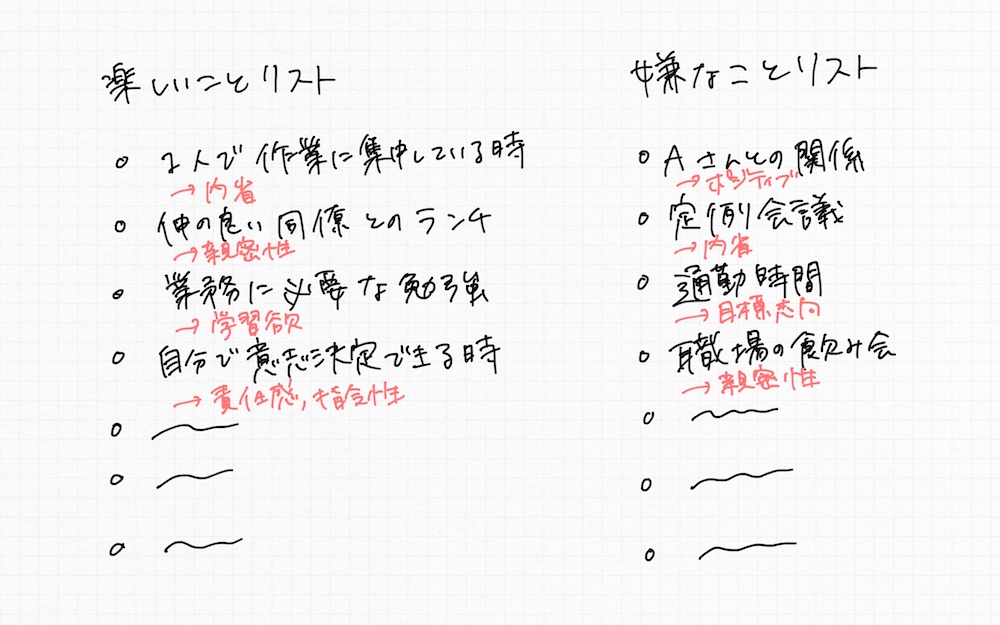 楽しいことリスト
○ 1人で作業に集中している時
→ 内省
○ 仲の良い同僚とのランチ
→ 親密性
○ 業務に必要な勉強
→ 学習欲
○ 自分で意志決定できる時
→ 責任感, 指令性
嫌なことリスト
○ Aさんとの関係
→ ポジティブ
○ 定例会議
→ 内省
○ 通勤時間
→ 目標志向
○ 職場の飲み会
→ 親密性